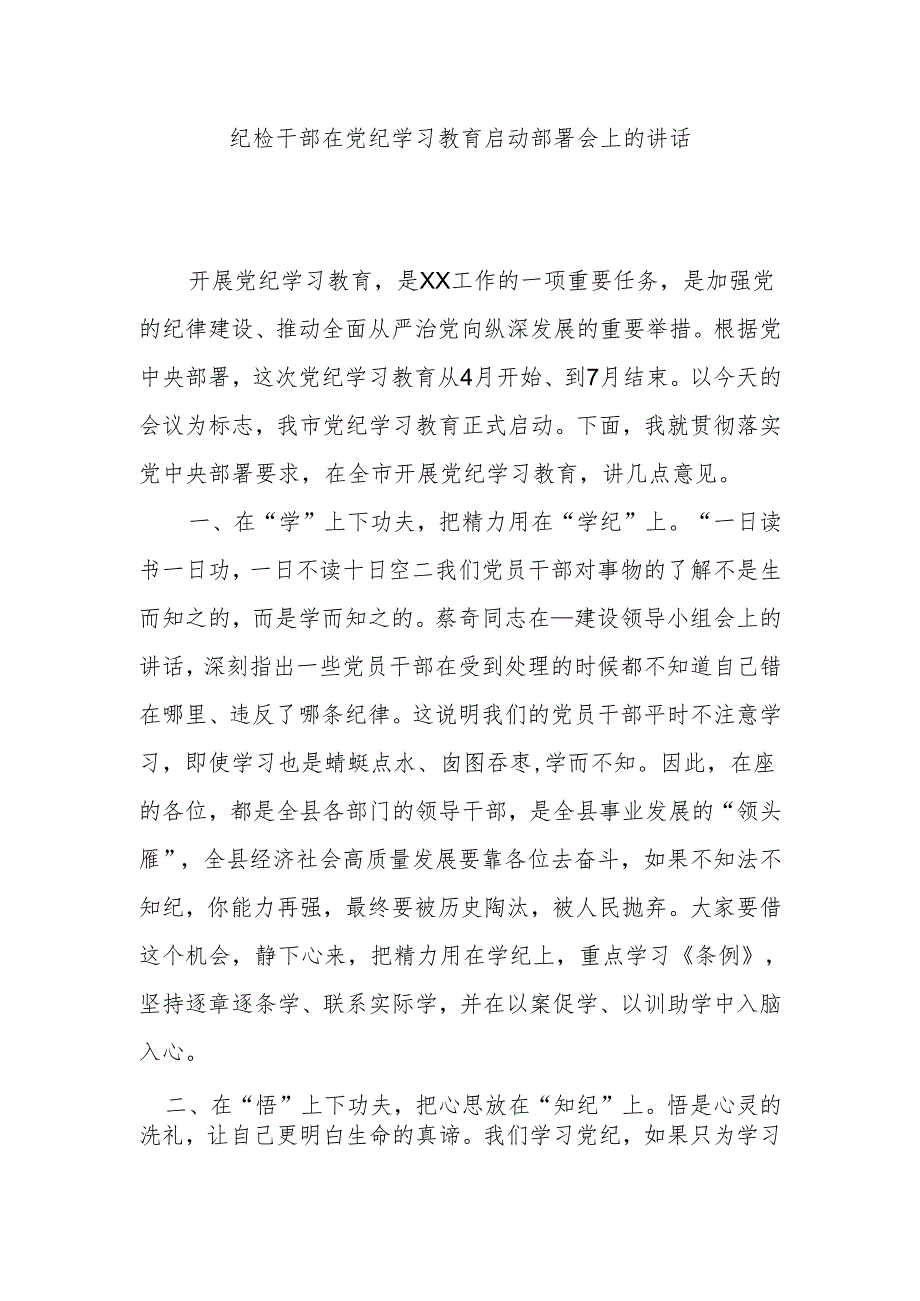 纪检干部在党纪学习教育启动部署会上的讲话
开展党纪学习教育，是XX工作的一项重要任务，是加强党
的纪律建设、推动全面从严治党向纵深发展的重要举措。根据党
中央部署，这次党纪学习教育从4月开始、到7月结束。以今天的
会议为标志，我市党纪学习教育正式启动。下面，我就贯彻落实
党中央部署要求，在全市开展党纪学习教育，讲几点意见。
一、在“学”上下功夫，把精力用在“学纪”上。“一日读
书一日功，一日不读十日空二我们党员干部对事物的了解不是生
而知之的，而是学而知之的。蔡奇同志在—建设领导小组会上的
讲话，深刻指出一些党员干部在受到处理的时候都不知道自己错
在哪里、违反了哪条纪律。这说明我们的党员干部平时不注意学
习，即使学习也是蜻蜓点水、囱图吞枣,学而不知。因此，在座
的各位，都是全县各部门的领导干部，是全县事业发展的“领头
雁”，全县经济社会高质量发展要靠各位去奋斗，如果不知法不
知纪，你能力再强，最终要被历史陶汰，被人民抛弃。大家要借
这个机会，静下心来，把精力用在学纪上，重点学习《条例》，
坚持逐章逐条学、联系实际学，并在以案促学、以训助学中入脑
入心。
二、在“悟”上下功夫，把心思放在“知纪”上。悟是心灵的
洗礼，让自己更明白生命的真谛。我们学习党纪，如果只为学习